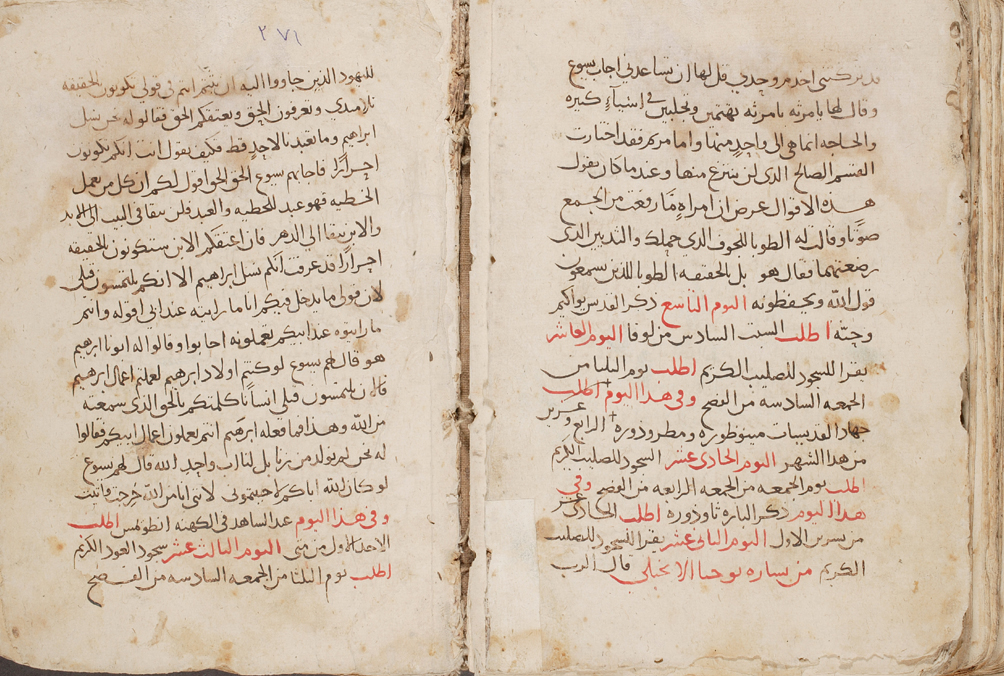 قد تركتني اخدم وحدي قل لها ان تساعدني اجاب يسوع
وقال لها يا مرثه يا مرثه تهتمين وتجلبين في اشياء كثيره
والحاجه انما هي الى واحدٍ منها واما مريم فقد اختارت
القسم الصالح الذى لن ينتزع منها وعند ما كان يقول
هذه الاقوال عرض ان امراهٍ مّا رفعت من الجمع
صوتًا وقالت له الطوبا للجوف الذى حملك والثديين الذى
رضعتهما فقال هو بل بالحقيقه الطوبا للذين يسمعون
قول الله ويحفظونه اليوم التاسع ذكر القديس يواكيم
وحنّه اطلب السبت السادس من لوقا اليوم العاشر
يقرا للسجود للصليب الكريم اطلب يوم الثلثا من
الجمعه السادسه من الفصح وفى هذا اليوم اطلب
جهاد القديسات مينوطوره ومطروذوره الرابع وعريز
من هذا الشهر اليوم الحادى عشر السجود للصليب الكريم
اطلب يوم الجمعه من الجمعه الرابعه من الفصح وفى
هذا اليوم ذكر الباره ثاوذوره اطلب الحادى عشر
من تشرين الاول اليوم الثانى عشر يقرا للسجود للصليب
الكريم من بشاره يوحنا الانجيلى قال الرب
٢٧١
لليهود الذين جاووا اليه ان ثبتّم انتم فى قولى تكونون بالحقيقه
تلاميدى وتعرفون الحق ويعتقكم الحق فقالو له نحن نسل
ابراهيم وما تعبدنا لاحدٍ قط فكيف تقول انت انكم تكونون
احرارًا فاجابهم يسوع الحق الحق اقول لكم ان كل من يعمل
الخطيه فهو عبد للخطيه والعبد فلن يبقا فى البيت الى الابد
والابن يبقا الى الدهر فان اعتقكم الابن ستكونون بالحقيقه
احرارًا قد عرفت انكم نسل ابراهيم الا انكم تلتمسون قتلى
لان قولى ما يدخل فيكم انا ما رايته عند ابى اقوله وانتم
ما رايتوه عند ابيكم تعملونه اجابوا وقالوا له ابونا ابرهيم
هو قال لهم يسوع لو كنتم اولاد ابرهيم لعملتم اعمال ابرهيم
فالان تلتمسون قتلى انسانًا كلمتكم بالحق الذى سمعته
من الله وهذا فما فعله ابرهيم انتم تعملون اعمال ابيكم فقالوا
له نحن لم نولد من زنا بل لنا اب واحدٍ الله قال لهم يسوع
لو كان الله اباكم لاحببتمونى لاننى انا من الله خرجت واتيت
وفى هذا اليوم عيد الشاهد فى الكهنه انطونمس اطلب
الاحد الاول من متى اليوم الثالث عشر سجود العود الكريم
اطلب يوم الثلثا من الجمعه السادسه من الفصح